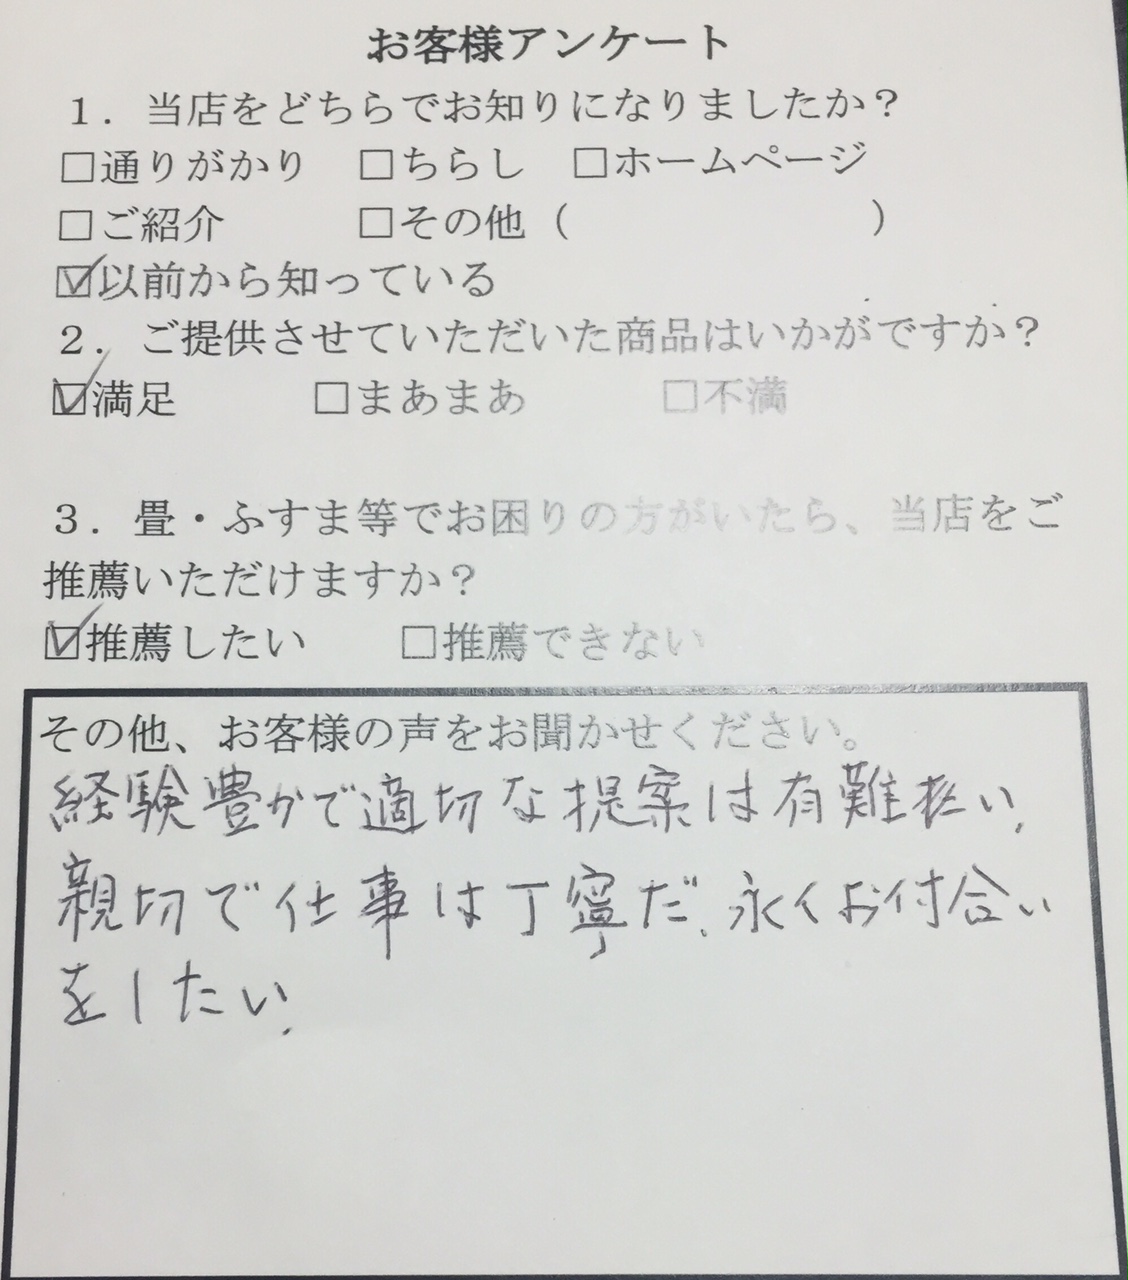 お客様アンケート
1．当店をどちらでお知りになりましたか？
□通りがかり □ちらし □ホームページ
□ご紹介 □その他（ ）
☑以前から知っている
2．ご提供させていただいた商品はいかがですか？
☑満足 □まあまあ □不満
3．畳・ふすま等でお困りの方がいたら、当店をご
推薦いただけますか？
☑推薦したい □推薦できない
その他、お客様の声をお聞かせください。
経験豊かで適切な提案は有難い.
親切で仕事は丁寧だ.永くお付合い
をしたい.